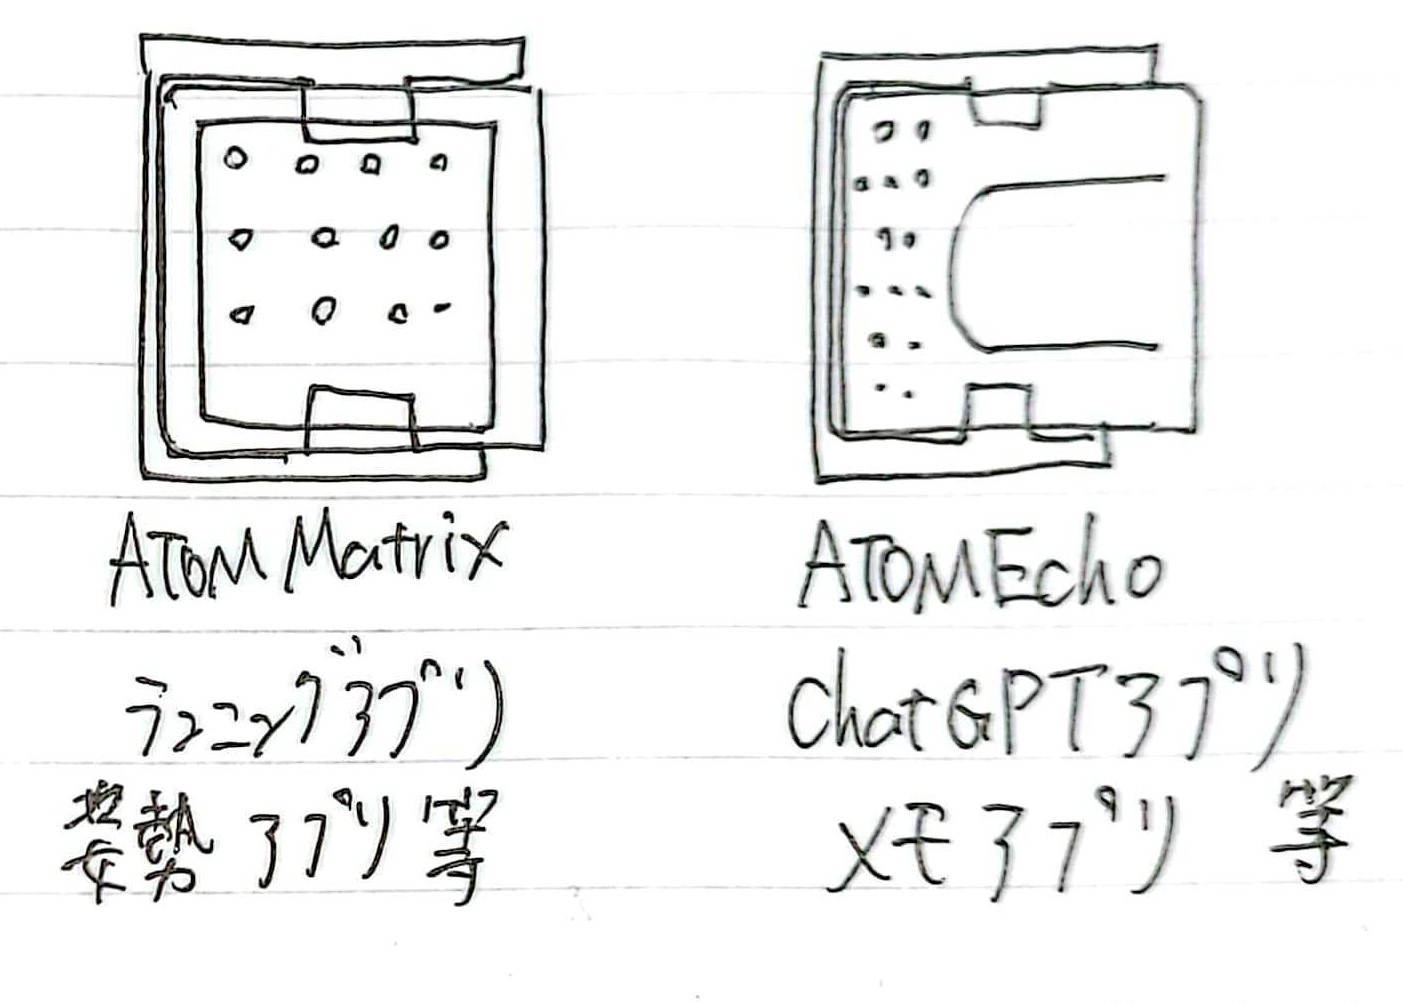 ATOM Matrix
ランニングアプリ
姿勢アプリ等
ATOM Echo
ChatGPTアプリ
メモアプリ 等